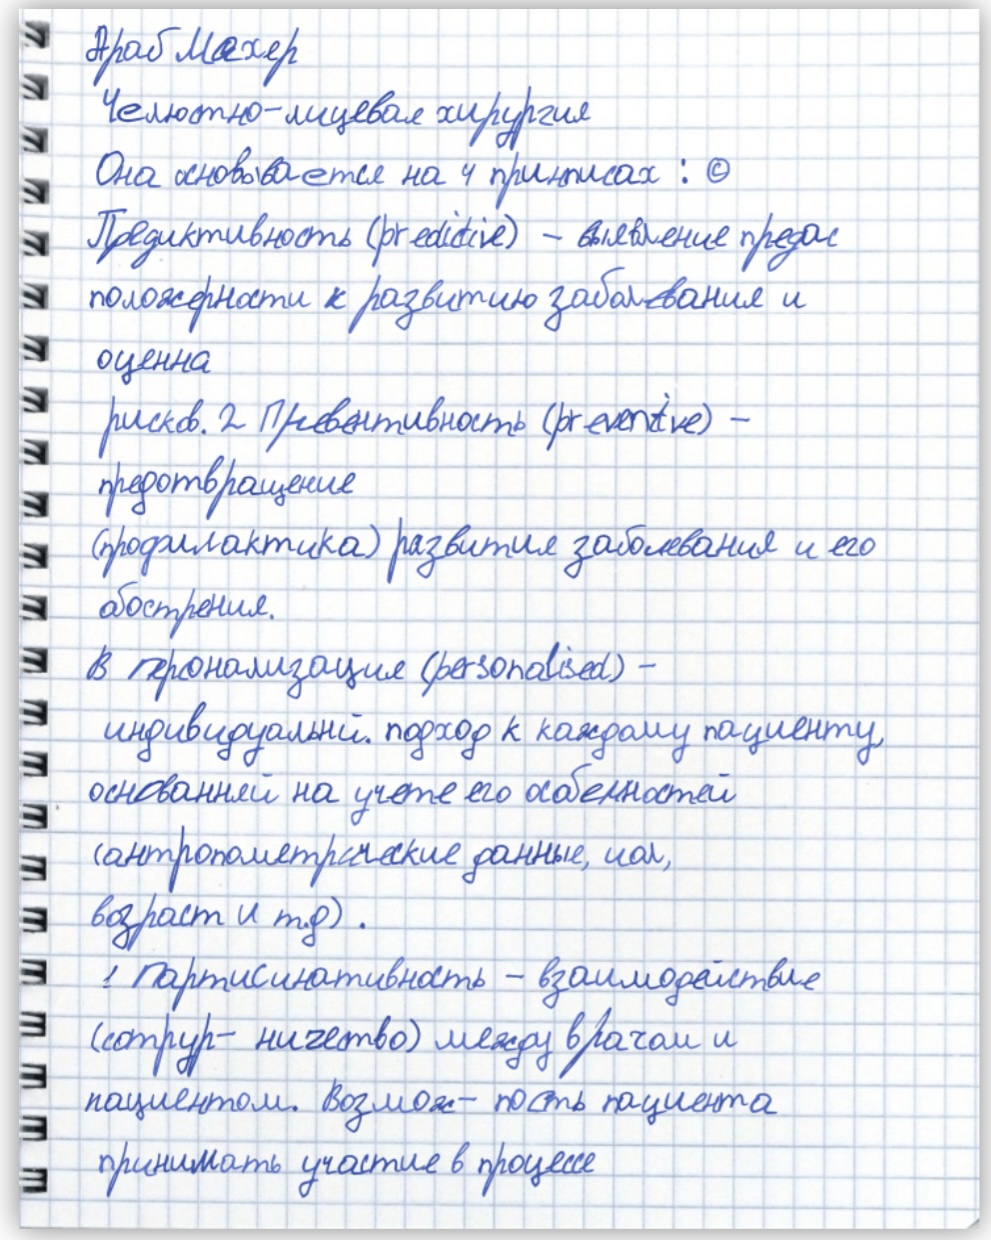 Араб Махер
Челюстно-лицевая хирургия
Она основывается на 4 принписах : ©
Предиктивность (predictive) - выявление предас
положерности к развитию заболевания и
оценна
рисков. 2 Превентивность (preventive) -
предотвращение
(профилактика) развития заболевания и его
обострения.
В перонализация (personalised) -
индивидуальнй. подход к каждому пациенту,
основанняй на учете его особенностей
(антропометрические данные, иол,
возраст и т.д) .
! Партисинативность - взаимодействие
(сотрур- ничество) между врачом и
пациентом. Возмож- пость пациента
принимать участие в процессе